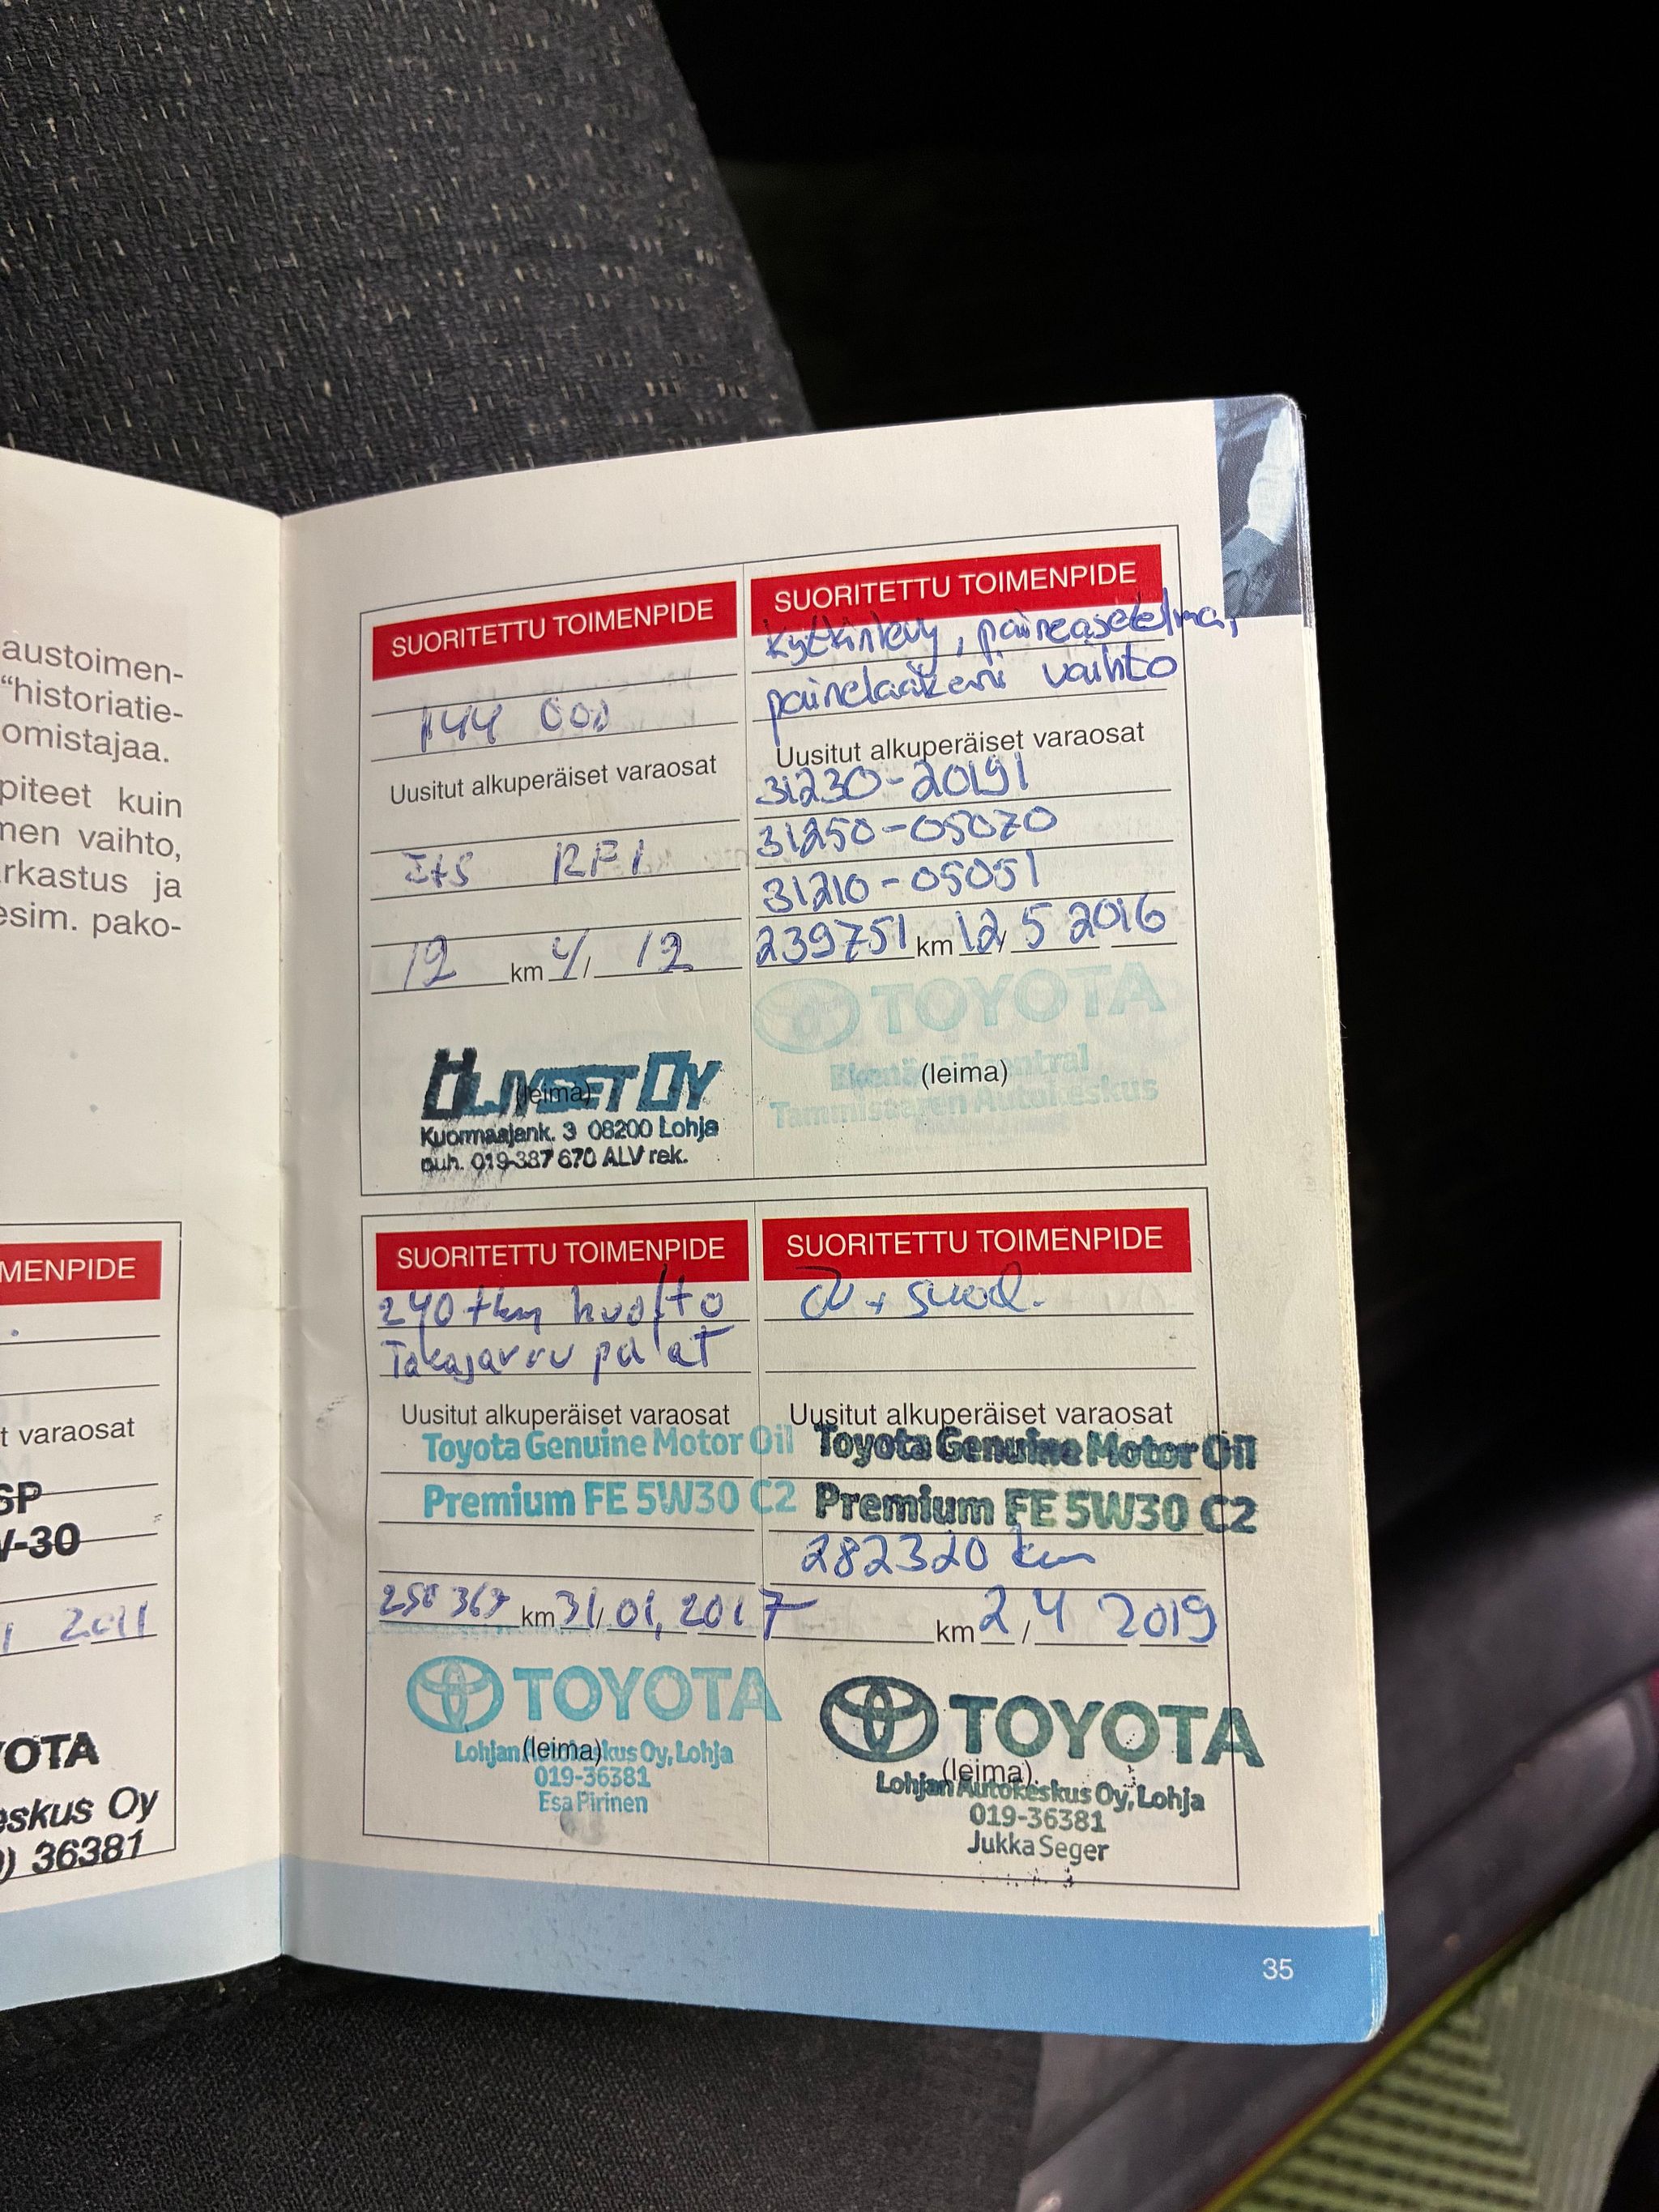 austoimen-
“historiatie-
omistajaa.
piteet kuin
men vaihto,
rkastus ja
esim. pako-
MENPIDE
t varaosat
SP
V-30
2011
OTA
eskus Oy
) 36381
SUORITETTU TOIMENPIDE
144 000
Uusitut alkuperäiset varaosat
12 km 4/ 12
(leima)
Kuormaajank. 3 08200 Lohja
puh. 019-387 670 ALV rek.
SUORITETTU TOIMENPIDE
Kytkinlevy, paineasetelma,
painelaakeri vaihto
Uusitut alkuperäiset varaosat
31230-20191
31250-05070
31210-05051
239751 km 12/ 5 2016
TOYOTA
Ekenäs Bilcentral
(leima)
Tammisaaren Autokeskus
SUORITETTU TOIMENPIDE
240 tkm huolto
Takajarru palat
Uusitut alkuperäiset varaosat
Toyota Genuine Motor Oil
Premium FE 5W30 C2
km 31/01, 2017
TOYOTA
(leima)
Lohjan Autokeskus Oy, Lohja
019-36381
Esa Pirinen
SUORITETTU TOIMENPIDE
+ suod.
Uusitut alkuperäiset varaosat
Toyota Genuine Motor Oil
Premium FE 5W30 C2
282320 km
km 2/4 2019
TOYOTA
(leima)
Lohjan Autokeskus Oy, Lohja
019-36381
Jukka Seger
35